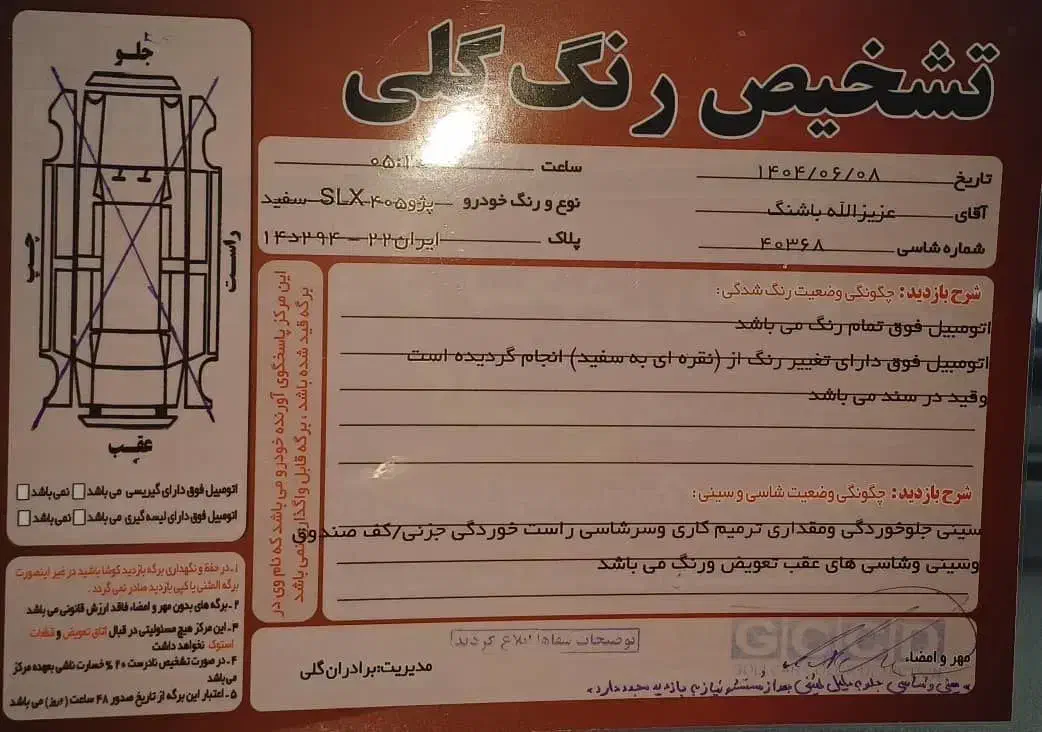 تشخیص رنگ گلی
تاریخ ۱۴۰۴/۰۶/۰۸
ساعت ۰۵:۱
آقای عزیزالله باشنگ
نوع و رنگ خودرو پژو۴۰۵ SLX سفید
شماره شاسی ۴۰۳۶۸
پلاک ایران۲۲ - ۲۹۴د۱۴
شرح بازدید: چگونگی وضعیت رنگ شدگی:
اتومبیل فوق تمام رنگ می باشد
اتومبیل فوق دارای تغییر رنگ از (نقره ای به سفید) انجام گردیده است
وقید در سند می باشد
شرح بازدید: چگونگی وضعیت شاسی و سینی:
سینی جلوخوردگی ومقداری ترمیم کاری وسرشاسی راست خوردگی جزئی/کف صندوق
وسینی وشاسی های عقب تعویض ورنگ می باشد
این مرکز پاسخگوی آورنده خودرو می باشد که نام وی در
برگه قید شده باشد ، برگه قابل واگذاری نمی باشد
جلو
چپ
راست
عقب
اتومبیل فوق دارای گیریسی می باشد نمی باشد
اتومبیل فوق دارای لیسه گیری می باشد نمی باشد
۱- در حفظ و نگهداری برگه بازدید کوشا باشید در غیر اینصورت
برگه المثنی یا کپی بازدید صادر نمی گردد.
۲- برگه های بدون مهر و امضاء فاقد ارزش قانونی می باشد
۳- این مرکز هیچ مسئولیتی در قبال اتاق تعویض و قطعات
استوک نخواهد داشت
۴- در صورت تشخیص نادرست ۲۰ % خسارت ناشی بعهده مرکز
می باشد
۵- اعتبار این برگه از تاریخ صدور ۴۸ ساعت (۲روز) می باشد
توضیحات شفاها ابلاغ گردید
مهر و امضاء
مدیریت: برادران گلی
سینی و شاسی جلو به دلیل کثیفی بعد از شستشو نیاز به بازدید مجدد دارد